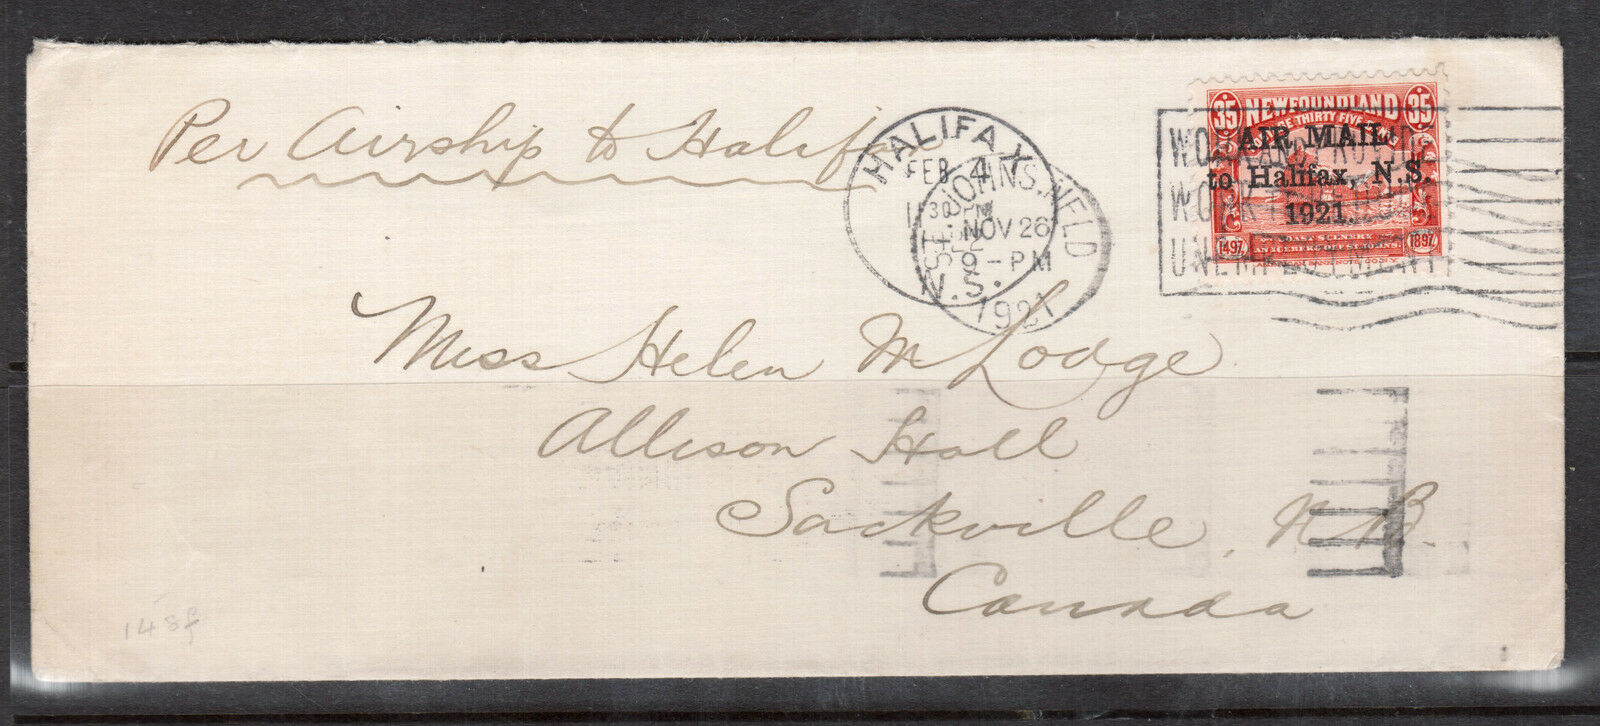 Per Airship to Halifax
HALIFAX
FEB 4
30 PM
N.S.
ST. JOHNS. NFLD
NOV 26
9 - PM
1921
35 NEWFOUNDLAND 35
THIRTY FIVE
AIR MAIL
to Halifax, N.S.
1921.
1497 1897
WORK AND PROVIDE
WORK
UNEMPLOYMENT
Miss Helen M Lodge
Allison Hall
Sackville, N.B.
Canada
148f